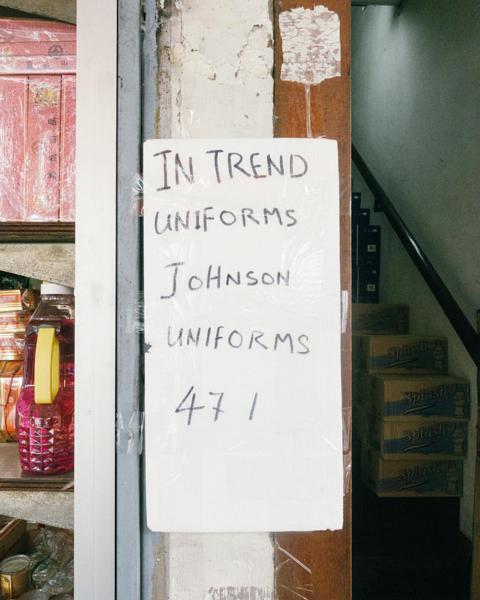 IN TREND
UNIFORMS
JOHNSON
UNIFORMS
471
Splash
Splash
Splash
Splash